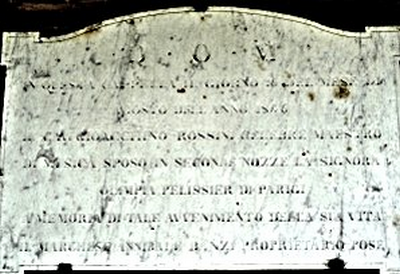 D. O. M.
IN QUESTA CAPPELLA IL GIORNO 16 DEL MESE DI
AGOSTO DELL'ANNO 1846
IL CAV. GIOACCHINO ROSSINI CELEBRE MAESTRO
DI MUSICA SPOSO IN SECONDE NOZZE LA SIGNORA
OLIMPIA PELISSIER DI PARIGI
A MEMORIA DI TALE AVVENIMENTO DELLA SUA VITA
IL MARCHESE ANNIBALE BANZI PROPRIETARIO POSE